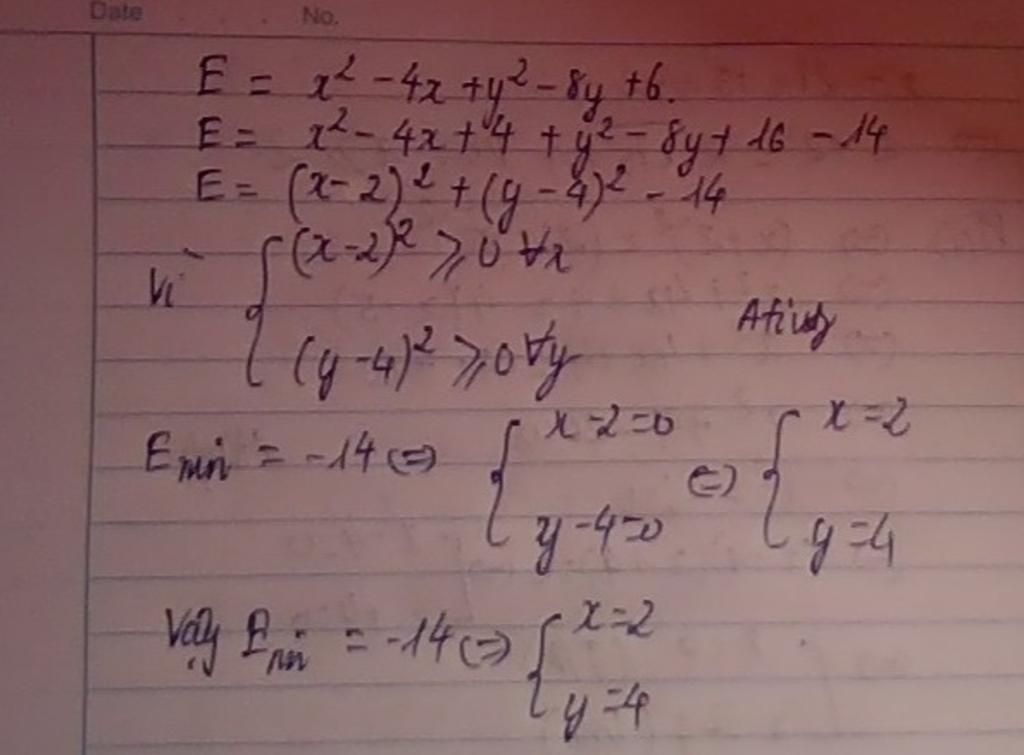 Date No.
E = x² - 4x + y² - 8y + 6.
E = x² - 4x + 4 + y² - 8y + 16 - 14
E = (x - 2)² + (y - 4)² - 14
Vì { (x - 2)² ⩾ 0 ∀x
(y - 4)² ⩾ 0 ∀y
E min = -14 ⇔ { x - 2 = 0 ⇔ { x = 2
y - 4 = 0 y = 4
Vậy E min = -14 ⇔ { x = 2
y = 4